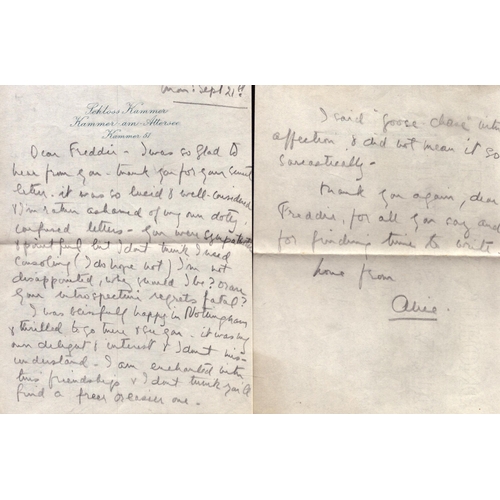 Mon: Sept 21st
Schloss Kammer
Kammer am Attersee
Kammer 61
Dear Freddie - I was so glad to
hear from you - thank you for your sweet
letter. it was so lucid & well-considered
& I'm rather ashamed of my own dotty,
confused letters - you were sympathetic
& but I dont think I need
consoling (I do hope not) I'm not
disappointed, why should I be? or are
your introspective regrets fatal?
I was blissfully happy in Nottingham
& thrilled to go there & see you - it was my
own delight & interest & I dont mis-
understand - I am enchanted with
this friendship & I dont think you'll
find a freer or easier one -
I said "goose-chase" with
affection, & did not mean it so
sarcastically -
thank you again, dear
Freddie, for all you say and
for finding time to write
love from
Alice.